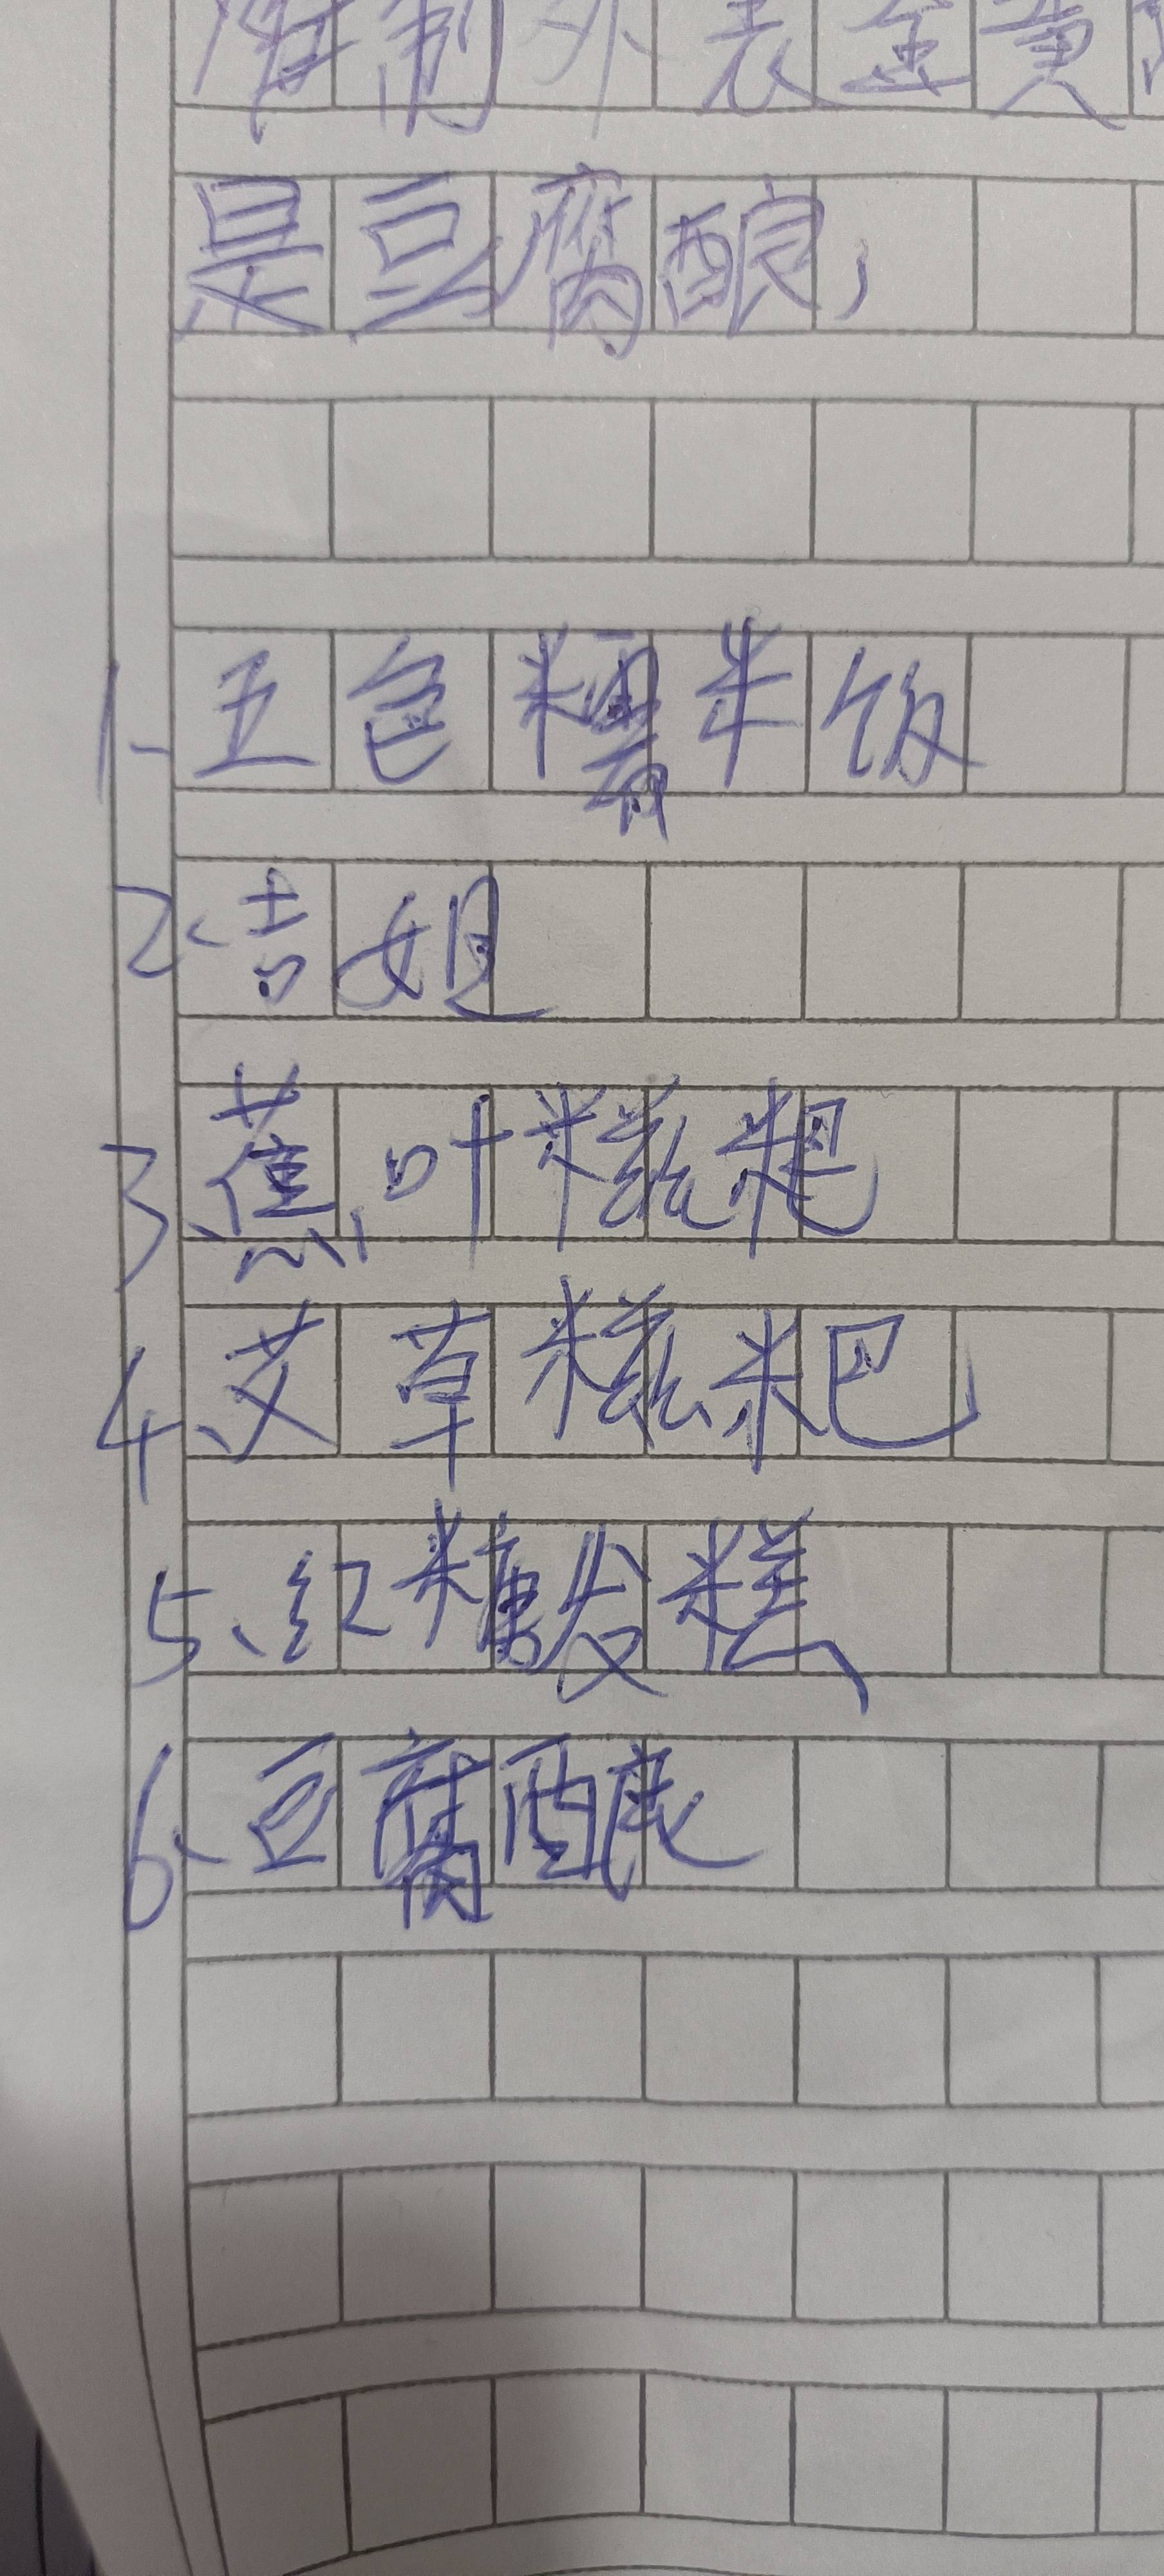 制外表金黄
是豆腐酿，
1、五色糯米饭
2、吉姐
3、蕉叶糍粑
4、艾草糍粑
5、红糖发糕
6、豆腐酿